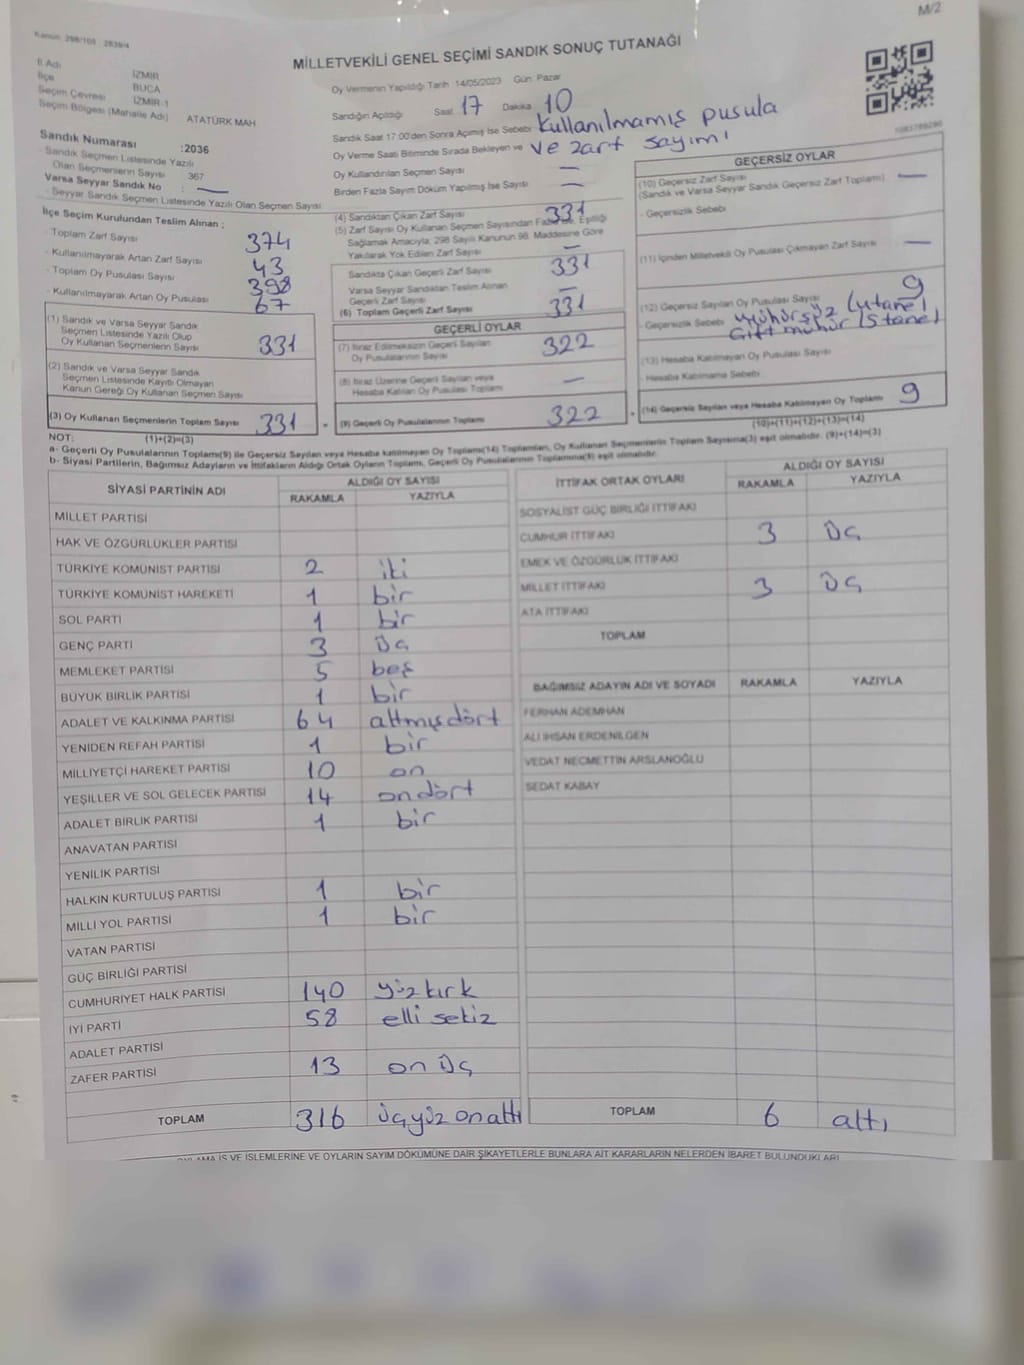 M/2
Kanun: 298/105 2839/4
MİLLETVEKİLİ GENEL SEÇİMİ SANDIK SONUÇ TUTANAĞI
İl Adı İZMİR
İlçe BUCA
Seçim Çevresi İZMİR-1
Seçim Bölgesi (Mahalle Adı) ATATÜRK MAH
Sandık Numarası :2036
- Sandık Seçmen Listesinde Yazılı
Olan Seçmenlerin Sayısı 367
Varsa Seyyar Sandık No : —
- Seyyar Sandık Seçmen Listesinde Yazılı Olan Seçmen Sayısı
Oy Vermenin Yapıldığı Tarih 14/05/2023 Gün: Pazar
Sandığın Açıldığı Saat 17 Dakika 10
Sandık Saat 17:00'den Sonra Açılmış İse Sebebi Kullanılmamış pusula
Oy Verme Saati Bitiminde Sırada Bekleyen ve ve zarf sayımı
Oy Kullandırılan Seçmen Sayısı —
Birden Fazla Sayım Döküm Yapılmış İse Sayısı —
İlçe Seçim Kurulundan Teslim Alınan ;
- Toplam Zarf Sayısı 374
- Kullanılmayarak Artan Zarf Sayısı 43
- Toplam Oy Pusulası Sayısı 398
- Kullanılmayarak Artan Oy Pusulası 67
(1) Sandık ve Varsa Seyyar Sandık
Seçmen Listesinde Yazılı Olup
Oy Kullanan Seçmenlerin Sayısı 331
(2) Sandık ve Varsa Seyyar Sandık
Seçmen Listesinde Kayıtlı Olmayan
Kanun Gereği Oy Kullanan Seçmen Sayısı
(3) Oy Kullanan Seçmenlerin Toplam Sayısı 331
(1)+(2)=(3)
(4) Sandıktan Çıkan Zarf Sayısı 331
(5) Zarf Sayısı Oy Kullanan Seçmen Sayısından Fazla İse, Eşitliği
Sağlamak Amacıyla; 298 Sayılı Kanunun 98. Maddesine Göre
Yakılarak Yok Edilen Zarf Sayısı —
Sandıkta Çıkan Geçerli Zarf Sayısı 331
Varsa Seyyar Sandıktan Teslim Alınan
Geçerli Zarf Sayısı —
(6) Toplam Geçerli Zarf Sayısı 331
GEÇERLİ OYLAR
(7) İtiraz Edilmeksizin Geçerli Sayılan
Oy Pusulalarının Sayısı 322
(8) İtiraz Üzerine Geçerli Sayılan veya
Hesaba Katılan Oy Pusulası Toplamı —
= (9) Geçerli Oy Pusulalarının Toplamı 322
GEÇERSİZ OYLAR
(10) Geçersiz Zarf Sayısı —
(Sandık ve Varsa Seyyar Sandık Geçersiz Zarf Toplamı)
- Geçersizlik Sebebi
(11) İçinden Milletvekili Oy Pusulası Çıkmayan Zarf Sayısı —
(12) Geçersiz Sayılan Oy Pusulası Sayısı 9
- Geçersizlik Sebebi Mühürsüz (4 tane)
Çift mühür (5 tane)
(13) Hesaba Katılmayan Oy Pusulası Sayısı
- Hesaba Katılmama Sebebi
+ (14) Geçersiz Sayılan veya Hesaba Katılmayan Oy Toplamı 9
(10)+(11)+(12)+(13)=(14)
NOT:
a- Geçerli Oy Pusulalarının Toplamı(9) ile Geçersiz Sayılan veya Hesaba katılmayan Oy Toplamı(14) Toplamları, Oy Kullanan Seçmenlerin Toplam Sayısına(3) eşit olmalıdır. (9)+(14)=(3)
b- Siyasi Partilerin, Bağımsız Adayların ve İttifakların Aldığı Ortak Oyların Toplamı, Geçerli Oy Pusulalarının Toplamına(9) eşit olmalıdır.
SİYASİ PARTİNİN ADI ALDIĞI OY SAYISI
RAKAMLA YAZIYLA
MİLLET PARTİSİ
HAK VE ÖZGÜRLÜKLER PARTİSİ
TÜRKİYE KOMÜNİST PARTİSİ 2 iki
TÜRKİYE KOMÜNİST HAREKETİ 1 bir
SOL PARTİ 1 bir
GENÇ PARTİ 3 üç
MEMLEKET PARTİSİ 5 beş
BÜYÜK BİRLİK PARTİSİ 1 bir
ADALET VE KALKINMA PARTİSİ 64 altmışdört
YENİDEN REFAH PARTİSİ 1 bir
MİLLİYETÇİ HAREKET PARTİSİ 10 on
YEŞİLLER VE SOL GELECEK PARTİSİ 14 ondört
ADALET BİRLİK PARTİSİ 1 bir
ANAVATAN PARTİSİ
YENİLİK PARTİSİ
HALKIN KURTULUŞ PARTİSİ 1 bir
MİLLİ YOL PARTİSİ 1 bir
VATAN PARTİSİ
GÜÇ BİRLİĞİ PARTİSİ
CUMHURİYET HALK PARTİSİ 140 yüzkırk
İYİ PARTİ 58 elli sekiz
ADALET PARTİSİ
ZAFER PARTİSİ 13 on üç
TOPLAM 316 üçyüzonaltı
İTTİFAK ORTAK OYLARI ALDIĞI OY SAYISI
RAKAMLA YAZIYLA
SOSYALİST GÜÇ BİRLİĞİ İTTİFAKI
CUMHUR İTTİFAKI 3 üç
EMEK VE ÖZGÜRLÜK İTTİFAKI
MİLLET İTTİFAKI 3 üç
ATA İTTİFAKI
TOPLAM
BAĞIMSIZ ADAYIN ADI VE SOYADI RAKAMLA YAZIYLA
FERHAN ADEMHAN
ALİ İHSAN ERDENİLGEN
VEDAT NECMETTİN ARSLANOĞLU
SEDAT KABAY
TOPLAM 6 altı
OYLAMA İŞ VE İŞLEMLERİNE VE OYLARIN SAYIM DÖKÜMÜNE DAİR ŞİKAYETLERLE BUNLARA AİT KARARLARIN NELERDEN İBARET BULUNDUKLARI